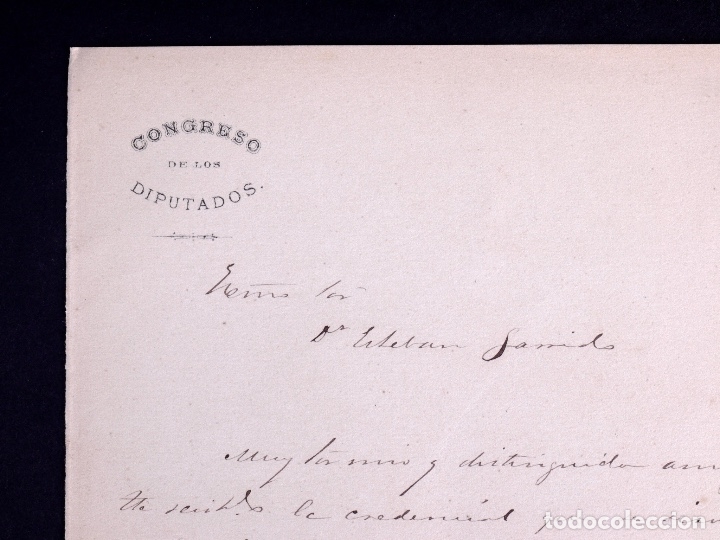 CONGRESO
DE LOS
DIPUTADOS.
Exmo Sor
Dn Esteban Garrido
Muy Sor mio y distinguido am
He recibido la credencial
todocoleccion